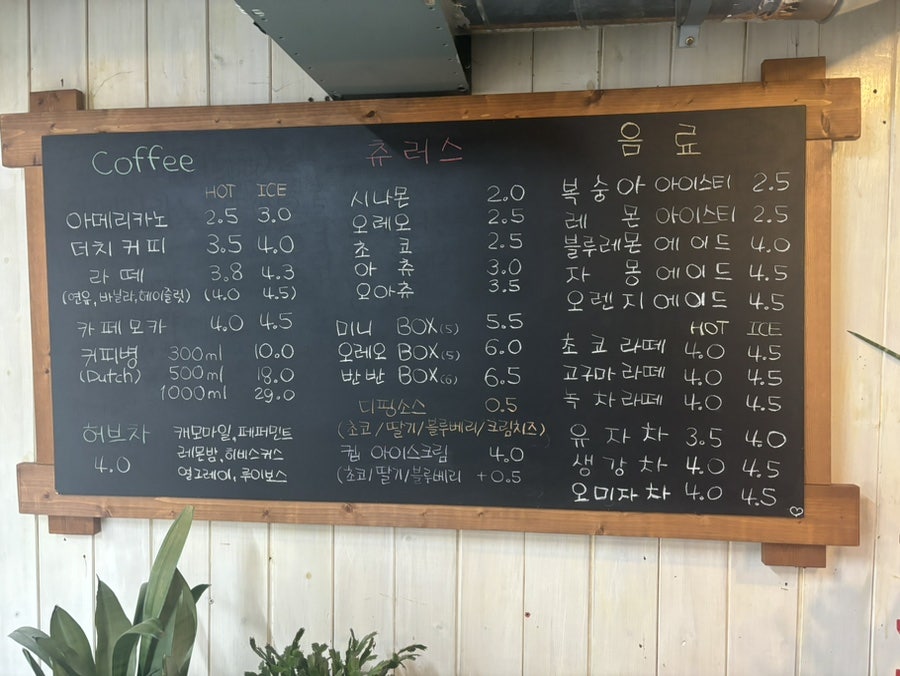 Coffee
HOT ICE
아메리카노 2.5 3.0
더치커피 3.5 4.0
라떼 3.8 4.3
(연유, 바닐라, 헤이즐넛) (4.0 4.5)
카페모카 4.0 4.5
커피병 300ml 10.0
(Dutch) 500ml 18.0
1000ml 29.0
허브차 캐모마일, 페퍼민트
4.0 레몬밤, 히비스커스
얼그레이, 루이보스
츄러스
시나몬 2.0
오레오 2.5
초코 2.5
아츄 3.0
오아츄 3.5
미니 BOX(5) 5.5
오레오 BOX(5) 6.0
반반 BOX(6) 6.5
디핑소스 0.5
(초코/딸기/블루베리/크림치즈)
컵 아이스크림 4.0
(초코/딸기/블루베리 +0.5
음료
복숭아 아이스티 2.5
레몬 아이스티 2.5
블루레몬에이드 4.0
자몽에이드 4.5
오렌지에이드 4.5
HOT ICE
초코라떼 4.0 4.5
고구마라떼 4.0 4.5
녹차라떼 4.0 4.5
유자차 3.5 4.0
생강차 4.0 4.5
오미자차 4.0 4.5